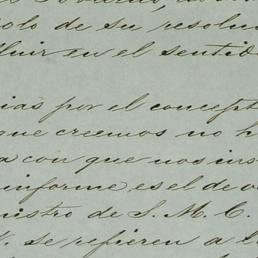 olo de su resolu
luir en el sentido
ias por el concept
que creemos no h
a con que nos ins
informe es el de o
nistro de S. M. C.
se refieren a l